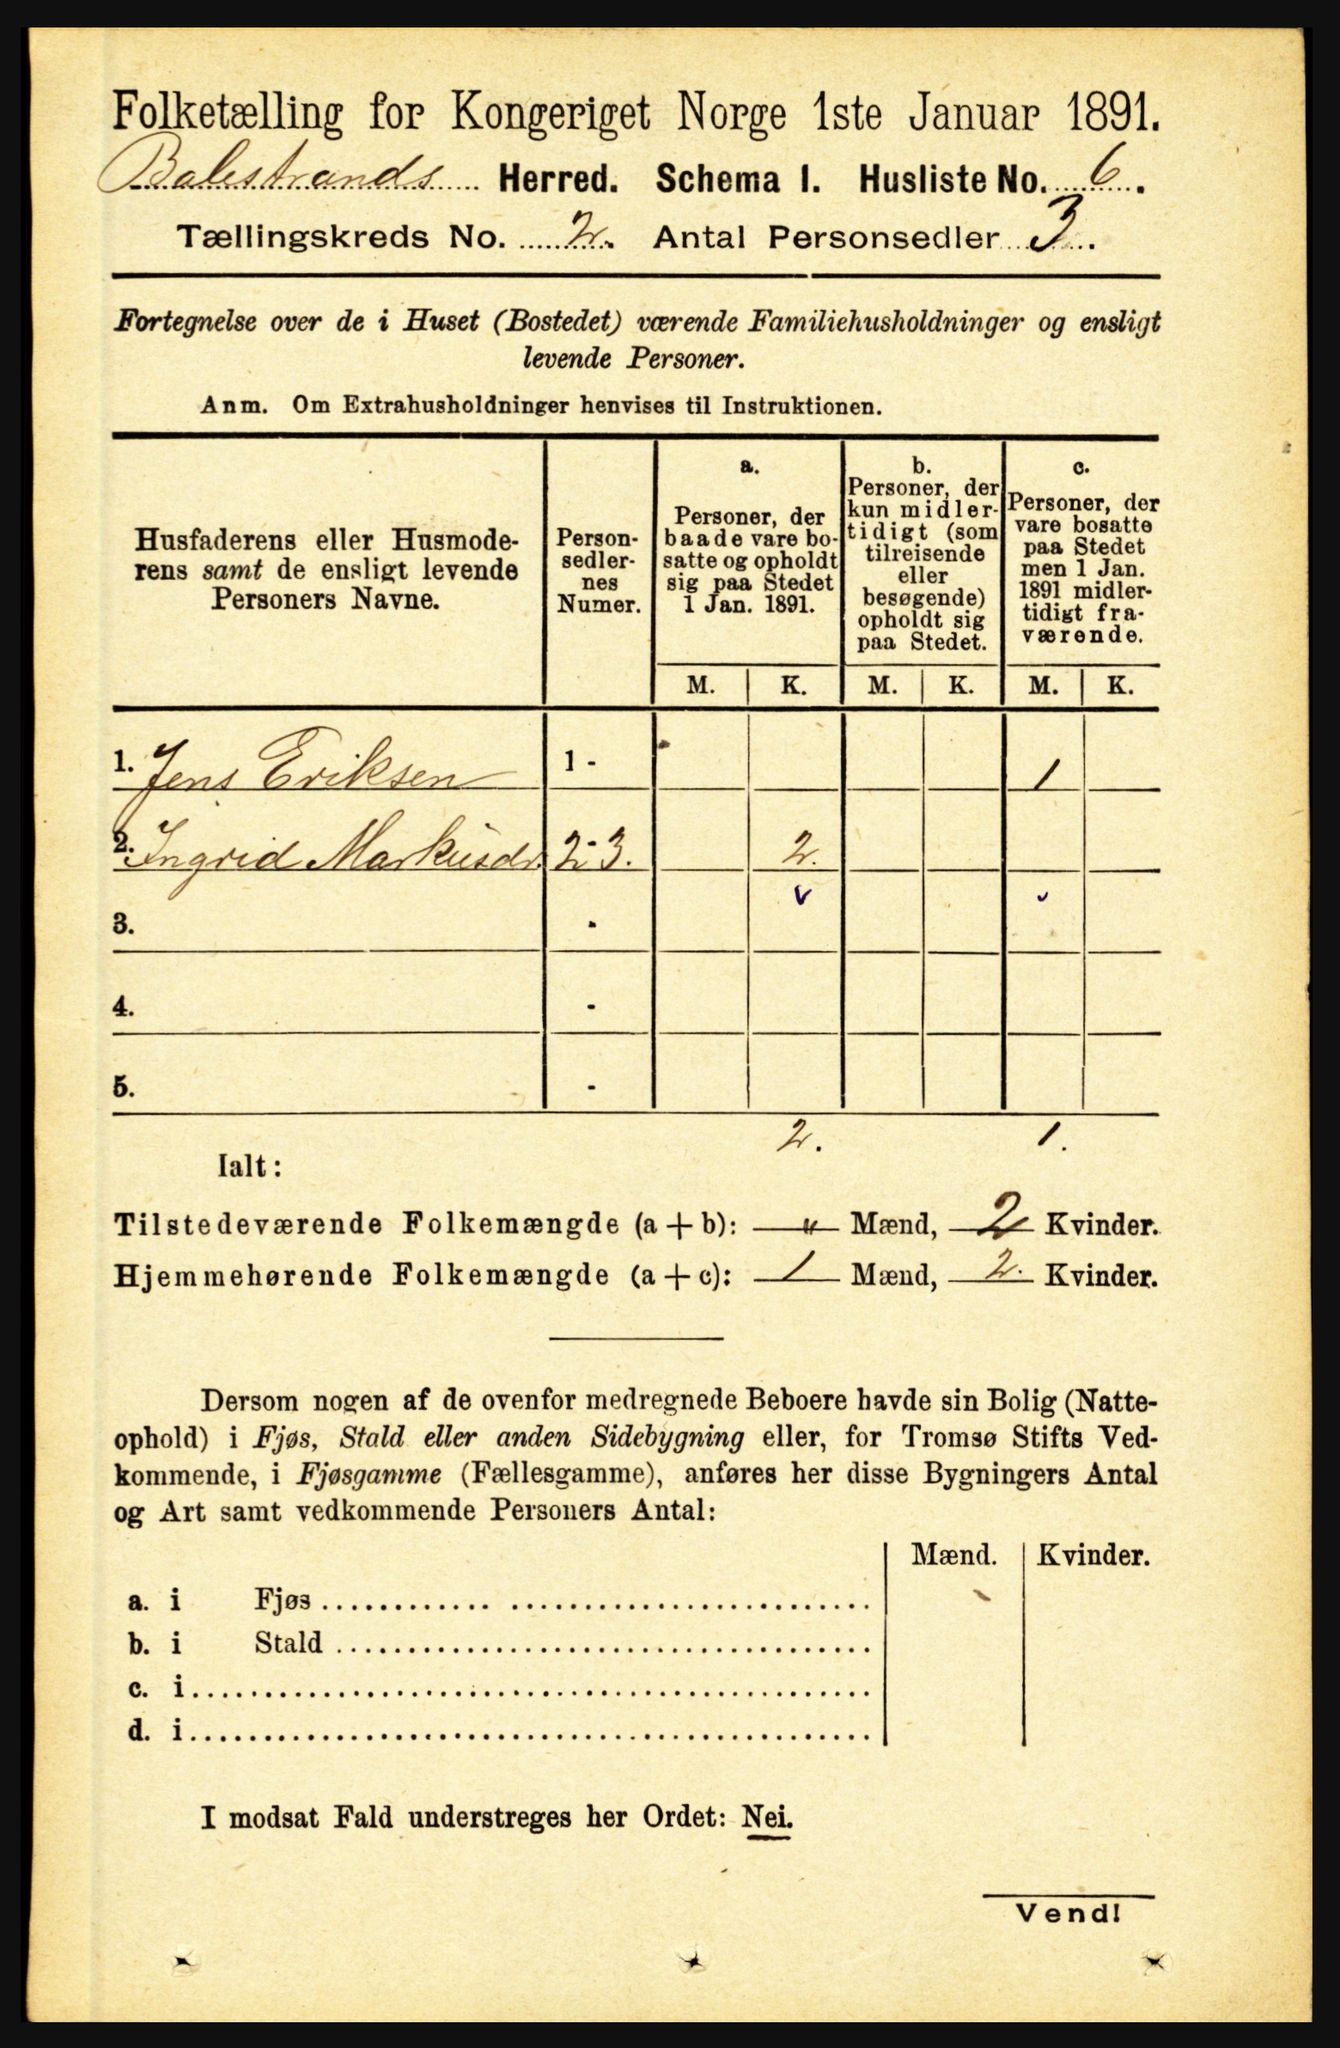 Folketælling for Kongeriget Norge 1ste Januar 1891.
Balestrands Herred. Schema I. Husliste No. 6.
Tællingskreds No. 2. Antal Personsedler 3.
Fortegnelse over de i Huset (Bostedet) værende Familiehusholdninger og ensligt
levende Personer.
Anm. Om Extrahusholdninger henvises til Instruktionen.
Husfaderens eller Husmode-
rens samt de ensligt levende
Personers Navne.
Person-
sedler-
nes
Numer.
a.
Personer, der
baade vare bo-
satte og opholdt
sig paa Stedet
1 Jan. 1891.
b.
Personer, der
kun midler-
tidigt (som
tilreisende
eller
besøgende)
opholdt sig
paa Stedet.
c.
Personer, der
vare bosatte
paa Stedet
men 1 Jan.
1891 midler-
tidigt fra-
værende.
M. K. M. K. M. K.
1. Jens Eriksen 1 - 1
2. Ingrid Markusdr. 2-3. 2.
3. -
4. -
5. -
2. 1.
Ialt:
Tilstedeværende Folkemængde (a + b): „ Mænd, 2 Kvinder.
Hjemmehørende Folkemængde (a + c): 1 Mænd, 2. Kvinder.
Dersom nogen af de ovenfor medregnede Beboere havde sin Bolig (Natte-
ophold) i Fjøs, Stald eller anden Sidebygning eller, for Tromsø Stifts Ved-
kommende, i Fjøsgamme (Fællesgamme), anføres her disse Bygningers Antal
og Art samt vedkommende Personers Antal:
Mænd. Kvinder.
a. i Fjøs
b. i Stald
c. i
d. i
I modsat Fald understreges her Ordet: Nei.
Vend!